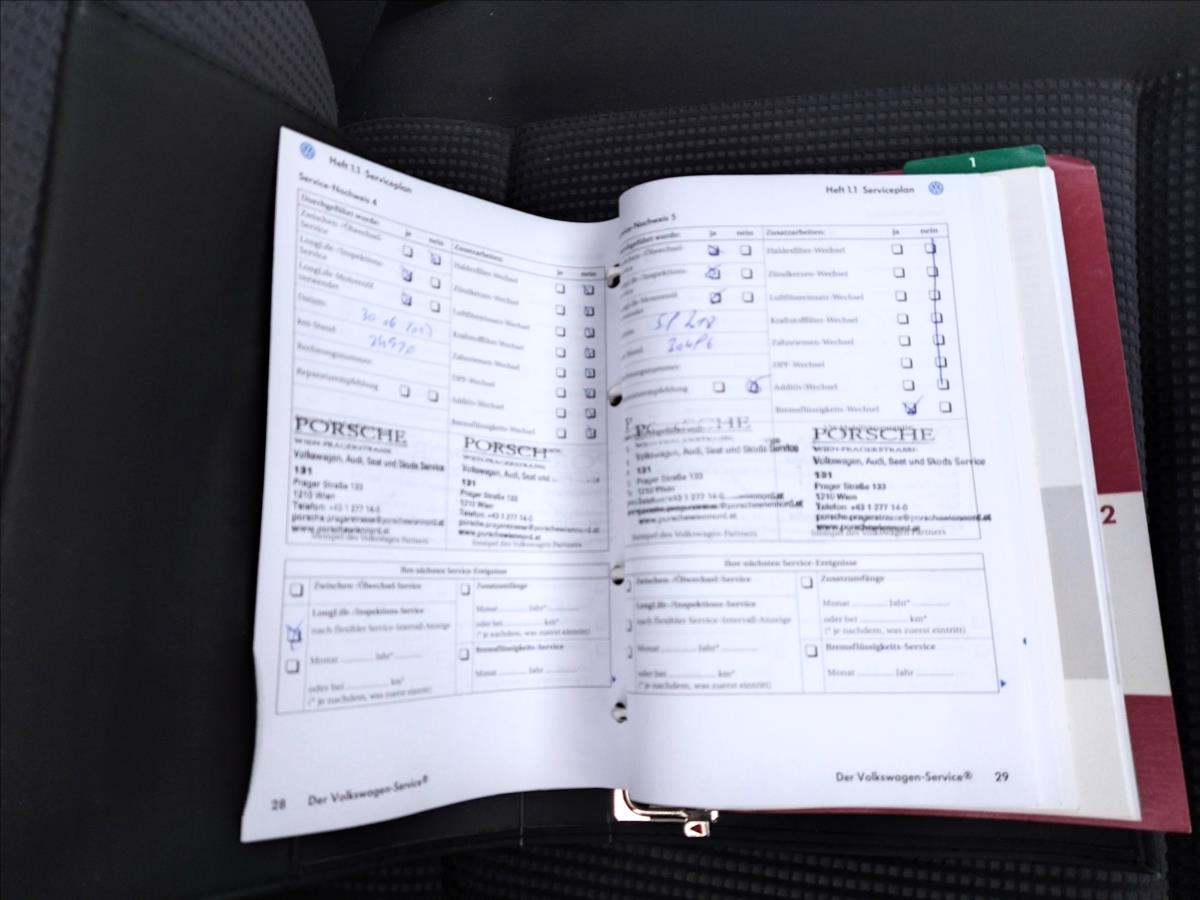 Heft 1.1 Serviceplan
Service-Nachweis 4
Durchgeführt wurde:
ja nein
Zwischen-/Ölwechsel-
Service
LongLife-/Inspektions-
Service
LongLife-Motorenöl
verwendet
Datum:
km-Stand:
Rechnungsnummer:
Reparaturempfehlung
Zusatzarbeiten:
ja nein
Haldexfilter-Wechsel
Zündkerzen-Wechsel
Luftfiltereinsatz-Wechsel
Kraftstofffilter-Wechsel
Zahnriemen-Wechsel
DPF-Wechsel
Additiv-Wechsel
Bremsflüssigkeits-Wechsel
PORSCHE
WIEN-PRAGERSTRASSE
Volkswagen, Audi, Seat und Skoda Service
131
Prager Straße 133
1210 Wien
Telefon: +43 1 277 14-0
porsche.pragerstrasse@porschewiennord.at
www.porschewiennord.at
PORSCH
WIEN-PRAGERSTRASSE
Volkswagen, Audi, Seat und
131
Prager Straße 133
1210 Wien
Telefon: +43 1 277 14-0
porsche.pragerstrasse@porschewiennord.at
www.porschewiennord.at
Stempel des Volkswagen Partners
Ihre nächsten Service-Ereignisse
Zwischen-/Ölwechsel-Service
LongLife-/Inspektions-Service
nach flexibler Service-Intervall-Anzeige
Monat Jahr*
oder bei km*
(* je nachdem, was zuerst eintritt)
Zusatzumfänge
Monat Jahr*
oder bei km*
(* je nachdem, was zuerst eintritt)
Bremsflüssigkeits-Service
Monat Jahr
28 Der Volkswagen-Service®
Heft 1.1 Serviceplan
-Nachweis 5
ja nein
Zusatzarbeiten:
ja nein
Haldexfilter-Wechsel
Zündkerzen-Wechsel
Luftfiltereinsatz-Wechsel
Kraftstofffilter-Wechsel
Zahnriemen-Wechsel
DPF-Wechsel
Additiv-Wechsel
Bremsflüssigkeits-Wechsel
PORSCHE
WIEN-PRAGERSTRASSE
Volkswagen, Audi, Seat und Skoda Service
131
Prager Straße 133
1210 Wien
Telefon: +43 1 277 14-0
www.porschewiennord.at
PORSCHE
WIEN-PRAGERSTRASSE
Volkswagen, Audi, Seat und Skoda Service
131
Prager Straße 133
1210 Wien
Telefon: +43 1 277 14-0
porsche.pragerstrasse@porschewiennord.at
www.porschewiennord.at
Stempel des Volkswagen Partners
Ihre nächsten Service-Ereignisse
Zwischen-/Ölwechsel-Service
LongLife-/Inspektions-Service
nach flexibler Service-Intervall-Anzeige
Monat Jahr*
oder bei km*
(* je nachdem, was zuerst eintritt)
Zusatzumfänge
Monat Jahr*
oder bei km*
(* je nachdem, was zuerst eintritt)
Bremsflüssigkeits-Service
Monat Jahr
Der Volkswagen-Service® 29
1
2